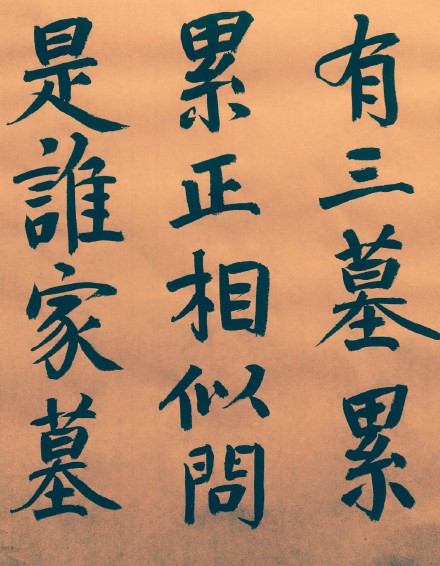 有三墓累
累正相似問
是誰家墓